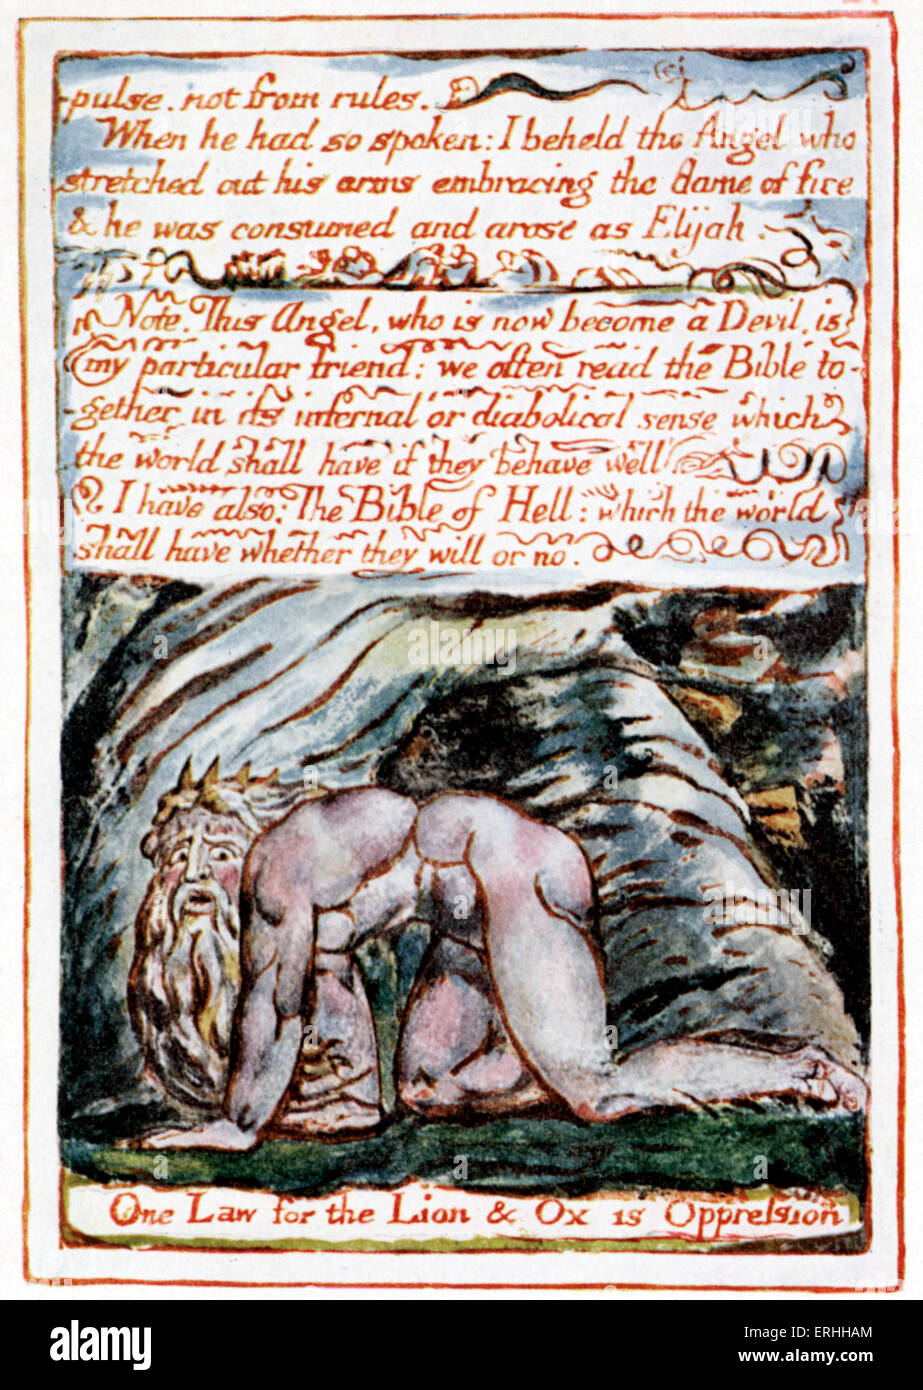 pulse. not from rules.
When he had so spoken: I beheld the Angel who
stretched out his arms embracing the flame of fire
& he was consumed and arose as Elijah.
Note. This Angel, who is now become a Devil, is
my particular friend: we often read the Bible to-
-gether in its infernal or diabolical sense which
the world shall have if they behave well
I have also: The Bible of Hell: which the world
shall have whether they will or no.
One Law for the Lion & Ox is Oppression
alamy
alamy
ERHHAM
www.alamy.com